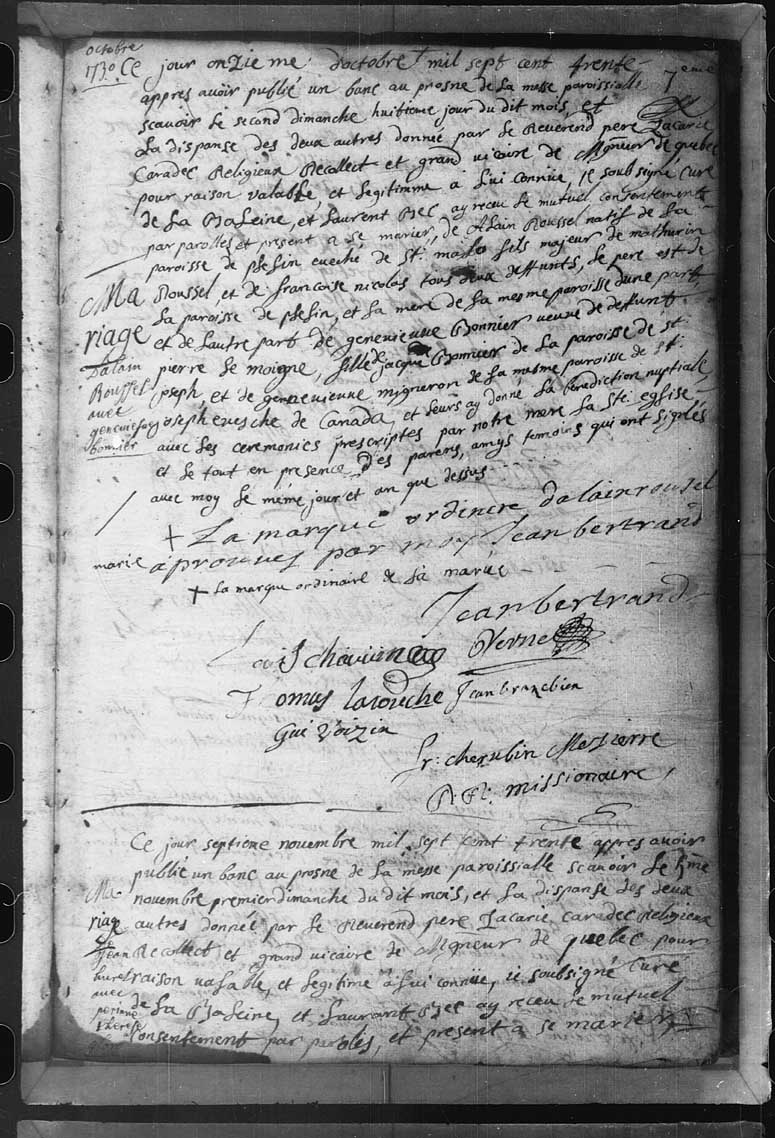 octobre
1730 Ce jour onzieme d'octobre mil sept cent trente
7eme
appres avoir publié un banc au prosne de la messe paroissialle
scavoir le second dimanche huitieme jour du dit mois, et
La dispanse des deux autres donnée par le Reverend pere Zacarie
Caradec Religieux Recollect et grand vicaire de Mgneur de quebec
pour raison valable, et legitimme a lui connüe, je soubsigné, Curé
de la Baleine, et Laurent Bec ay receu le mutuel consentement
par parolles et present a se marier, de Alain Roussel natif de la
paroisse de plesin eveché de St. malo fils majeur de mathurin
Roussel, et de francoise nicolas tous deux deffunts, le pere est de
la paroisse de plesin, et la mere de la mesme paroisse dune part,
et de lautre part de genevieuve Bonnier veuve de deffunt
pierre le moigne, fille de jacque Bonnier de la paroisse de st
joseph, et de genevieuve migneron de la mesme paroisse de st
joseph evesche de Canada, et leurs ay donné la benediction nuptiale,
avec les ceremonies prescriptes par notre mere la Ste. eglise
et le tout en presence des parens, amys temoins qui ont signés
avec moy le méme jour et an que dessus
Ma
riage
Dalain
Roussel
avec
bonnier
+ La marque ordincre dalain rousel
marié aprouves par moy Jean bertrand
+ La marque ordinaire de la mariée
Jean bertrand
Verne
Tomus larouche Jean
Gui Voizin
fr: cherubin
R. Rt. missionaire,
Ce jour septieme novembre mil sept cent trente appres avoir
publié un banc au prosne de la messe paroissialle scavoir le 5me
novembre premier dimanche du dit mois, et la dispanse des deux
autres donnée par le Reverend pere Zacarie caradec Religieux
Recollect et grand vicaire de Mgneur de quebec pour
raison valable, et legitime a lui connüe, je soubsigné Curé
de la Baleine, et Laurant Bec ay receu le mutuel
consentement par paroles, et present a se marier
Ma
riage
Jean
huret
avec